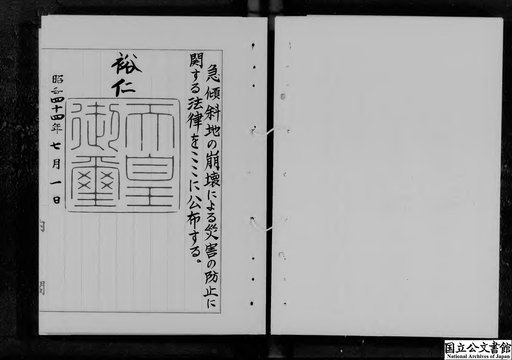 急傾斜地の崩壊による災害の防止に
関する法律をここに公布する。
裕仁
天皇
御璽
昭和四十四年七月一日
国立公文書館
National Archives of Japan